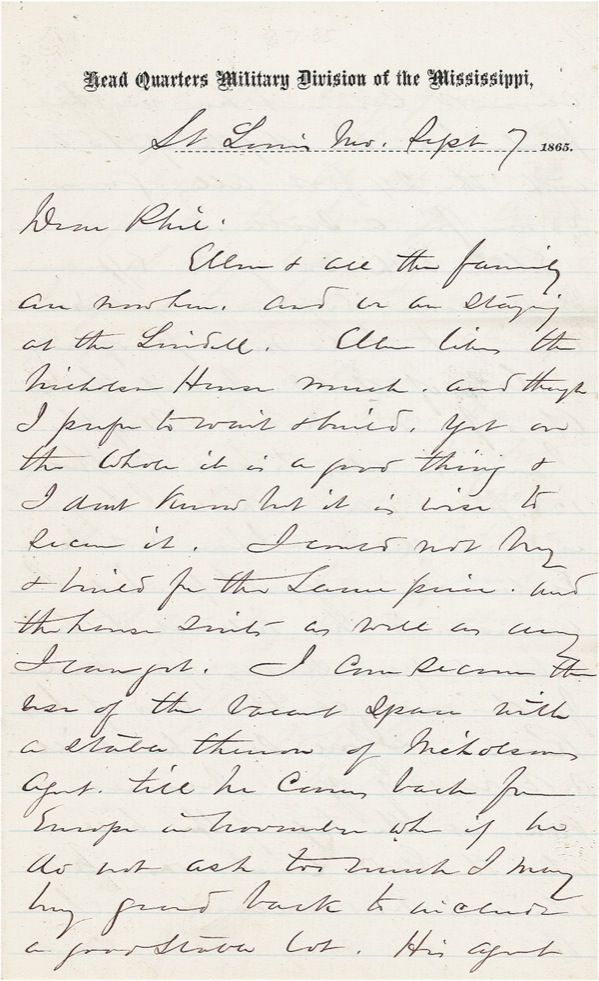 Head Quarters Military Division of the Mississippi,
St Louis Mo. Sept 7 1865.
Dear Phil.
Ellen & all the family
are now here. and we are staying
at the Lindell. Ellen likes the
Nicholson House much. and though
I prefer to wait & build. yet on
the whole it is a good thing &
I dont know but it is wise to
secure it. I could not buy
& build for the same price. and
the house suits as well as any
I can get. I can secure the
use of the vacant space with
a stable thereon of Nicholsons
Agent. till he comes back from
Europe in November when if he
do not ask too much I may
buy ground back to include
a good stable lot. His agent